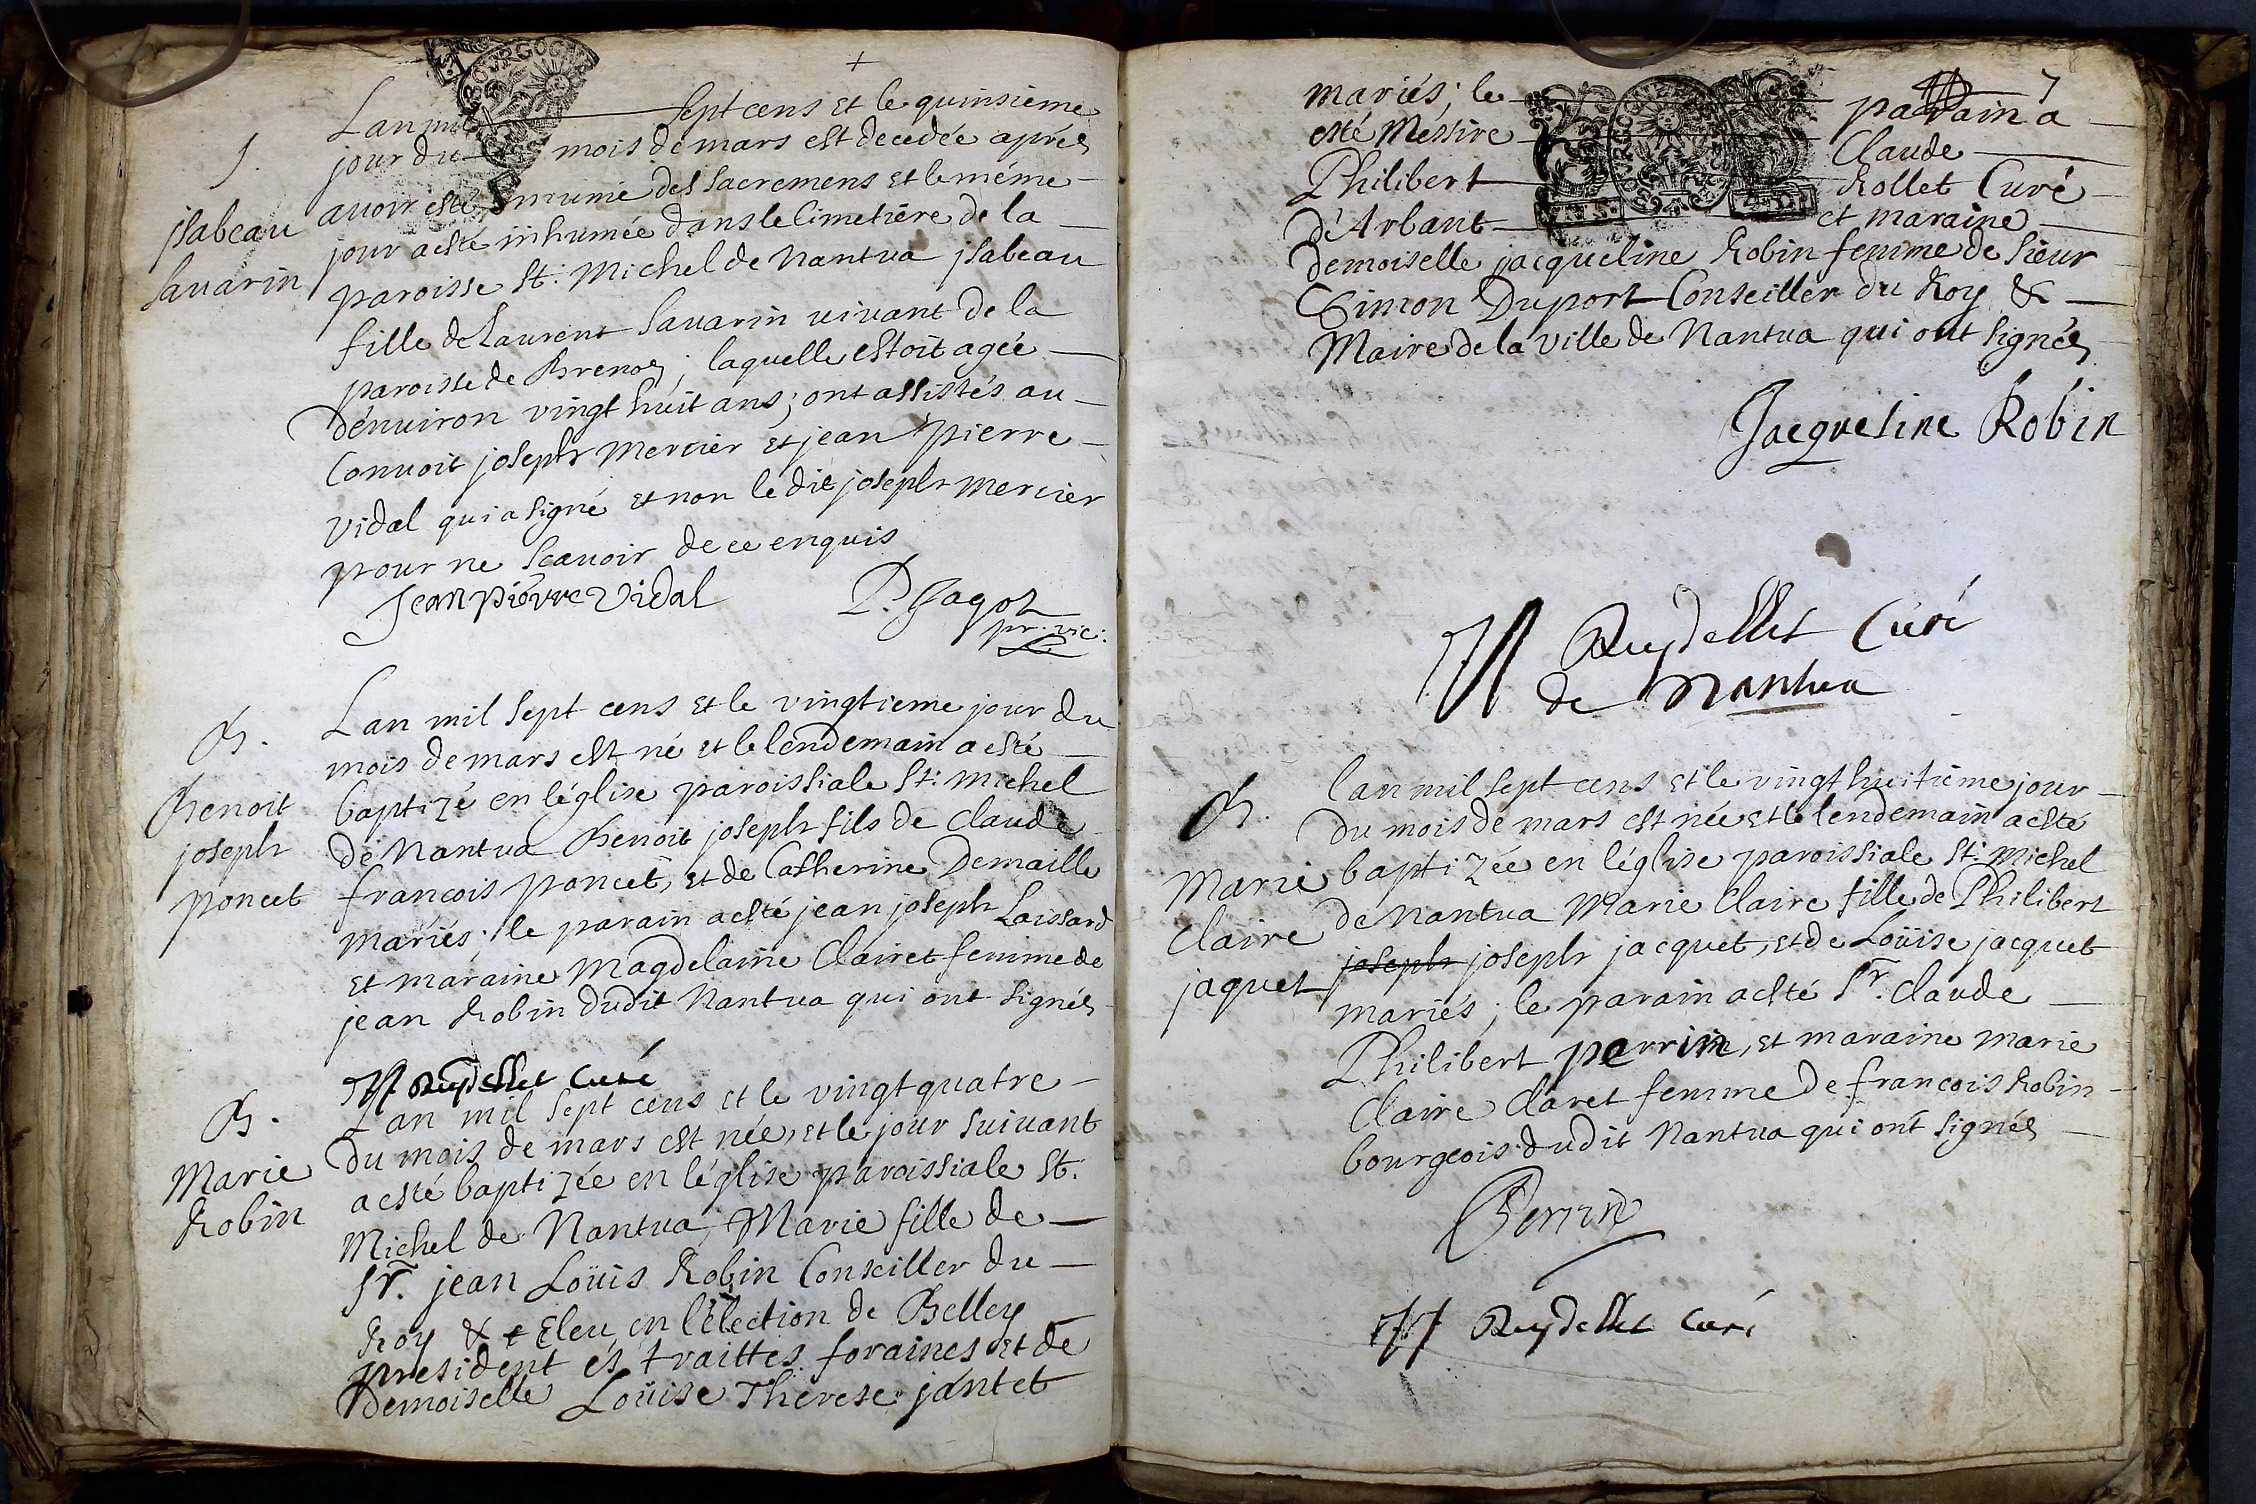 +
S.
jsabeau
Sauarin
Lan mil sept cens et le quinsieme
jour du mois de mars est decedée aprés
auoir esté munie des sacremens et le méme
jour a esté inhumée dans le Cimetiére de la
paroisse St. Michel de Nantua jsabeau
fille de Laurent Sauarin vivant de la
paroisse de Brenos, laquelle estoit agée
d'énuiron vingt huit ans; ont assistés au
Conuoit joseph Mercier et jean pierre
Vidal qui a signé et non lédit joseph Mercier
pour ne scauoir de ce enquis
Jean pierre Vidal
P. Jagot
pr. vic:
B.
Benoit
joseph
poncet
Lan mil sept cens et le vingtieme jour du
mois de mars est né et le lendemain a esté
baptizé en l'église paroissiale St. Michel
de Nantua Benoit joseph fils de Claude
francois poncet, et de Catherine Demaille
mariés; le parain a esté jean joseph Laissard
et maraine Magdelaine Clairet femme de
jean Robin dudit Nantua qui ont signés
Ruydellet Curé
B.
Marie
Robin
Lan mil sept cens et le vingt quatre
du mois de mars est née, et le jour suivant
a esté baptizée en l'église paroissiale St.
Michel de Nantua, Marie fille de
Sr. jean Loüis Robin Conseiller du
Roy & Eleu en l'élection de Belley
president és traittes foraines et de
Demoiselle Loüise Therese jantet
7
mariés; le parain a
esté Messire Claude
Philibert Rollet Curé
d'Arbant et maraine
demoiselle jacqueline Robin femme de Sieur
Simon Duport Conseiller du Roy &
Maire de la ville de Nantua qui ont signés
Jacqueline Robin
Ruydellet Curé
de Nantua
B.
Marie
Claire
jaquet
lan mil sept cens et le vingt huitiéme jour
du mois de mars est née et le lendemain a esté
baptizée en l'église paroissiale St. Michel
de Nantua Marie Claire fille de Philibert
joseph joseph jacquet, et de Loüise jacquet
mariés; le parain a esté Sr. Claude
Philibert perrin, et maraine Marie
Claire Claret femme de francois Robin
bourgeois dudit Nantua qui ont signés
Perrin
Ruydellet Curé